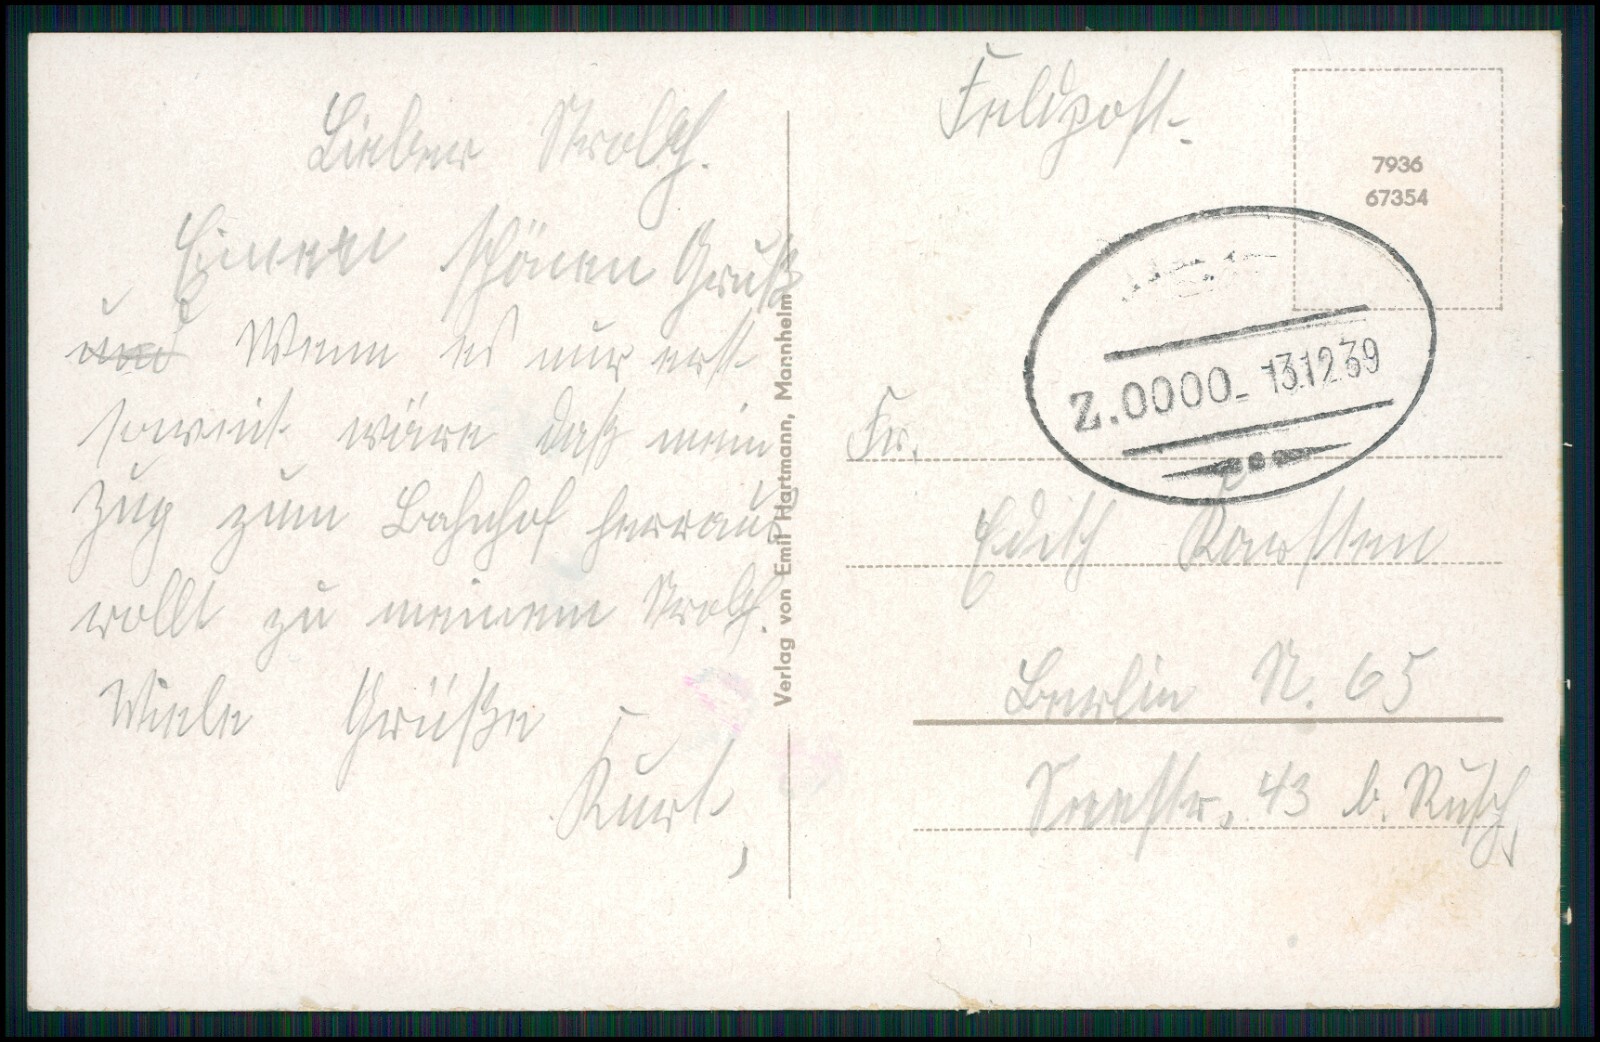 Lieber Strolch.
Einen schönen Gruß
und Wenn es nur erst
soweit wäre daß mein
Zug zum Bahnhof herraus
rollt zu meinem Strolch.
Viele Grüße
Kurt
Verlag von Emil Hartmann, Mannheim
Feldpost.
7936
67354
Z.0000- 13.12.39
Fr.
Edith Karsten
Berlin N. 65
Seestr. 43 b. Rusch